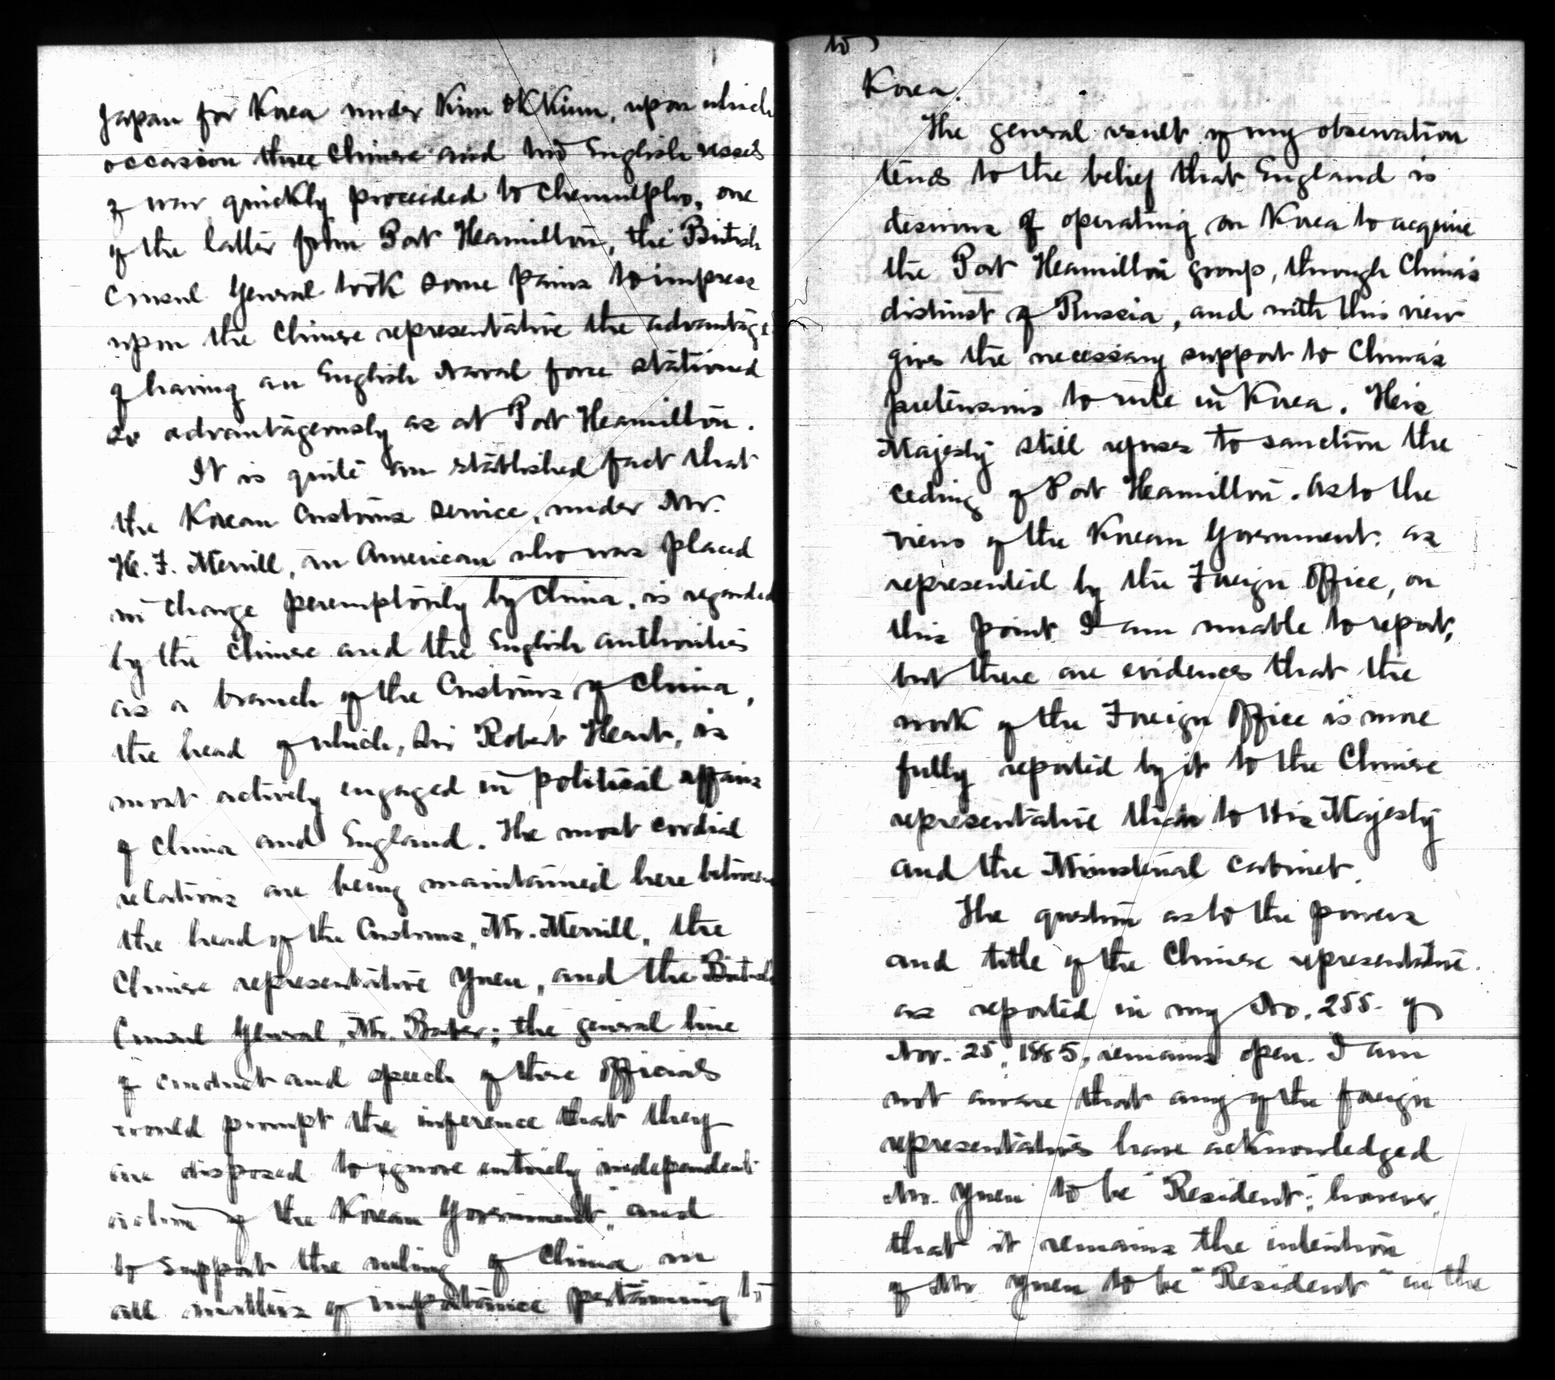 Japan for Korea under Kim Ok Kiun, upon which
occasion three Chinese and two English vessels
of war quickly proceeded to Chemulpho, one
of the latter from Port Heamilton, the British
Consul General took some pains to impress
upon the Chinese representative the advantage
of having an English Naval force stationed
so advantageously as at Port Heamilton.
It is quite an established fact that
the Korean Customs service, under Mr.
H. F. Merrill, an American who was placed
in charge peremptorily by China, is regarded
by the Chinese and the English authorities
as a branch of the Customs of China,
the head of which, Sir Robert Heart, is
most actively engaged in political affairs
of China and England. The most cordial
relations are being maintained here between
the head of the Customs, Mr. Merrill, the
Chinese representative Yuen, and the British
Consul General, Mr. Baber; the general line
of conduct and speech of those officials
would prompt the inference that they
are disposed to ignore entirely independent
action of the Korean Government, and
to support the ruling of China in
all matters of importance pertaining to
to
Korea.
The general result of my observation
tends to the belief that England is
desirous of operating on Korea to acquire
the Port Heamilton group, through China's
distrust of Russia, and with this view
gives the necessary support to China's
pretensions to rule in Korea. His
Majesty still refuses to sanction the
ceding of Port Heamilton. As to the
views of the Korean Government, as
represented by the Foreign Office, on
this point I am unable to report,
but there are evidences that the
work of the Foreign Office is more
fully reported by it to the Chinese
representative than to His Majesty
and the Ministerial cabinet.
The question as to the powers
and title of the Chinese representative.
as reported in my No. 255. of
Nov. 25, 1885, remains open. I am
not aware that any of the foreign
representatives have acknowledged
Mr. Yuen to be "Resident"; however,
that it remains the intention
of Mr Yuen to be "Resident" in the